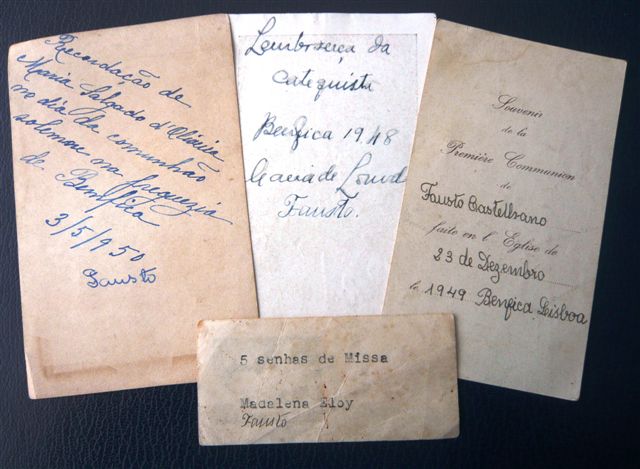 Recordação de
Maria Salgado d'Oliveira
no dia da comunhão
solemne na freguezia
de Benfica
3/5/950
Fausto
Lembrança da
catequista
Benfica 1948
Maria de Lourd
Fausto.
Souvenir
de la
Première Communion
de
Fausto Castelhano
faite en l'Eglise de
23 de Dezembro
le 1949 Benfica Lisboa
5 senhas de Missa
Madalena Eloy
Fausto